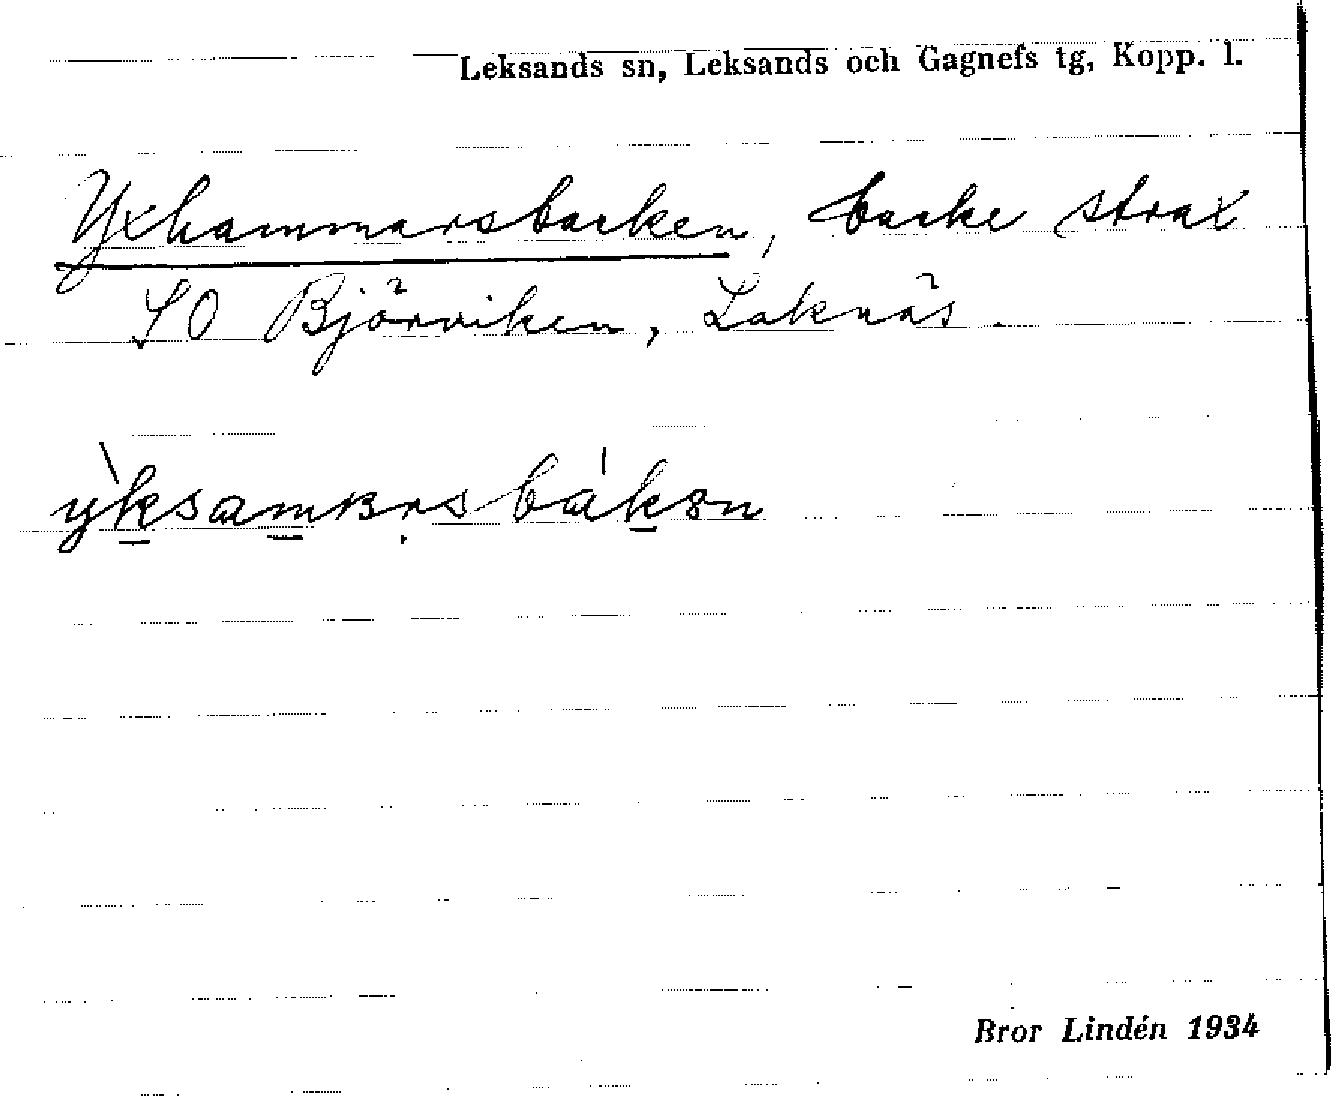 Leksands sn, Leksands och Gagnefs tg, Kopp. l.
Yxhammarsbacken, backe strax
SO Björviken, Laknäs.
Bror Lindén 1934